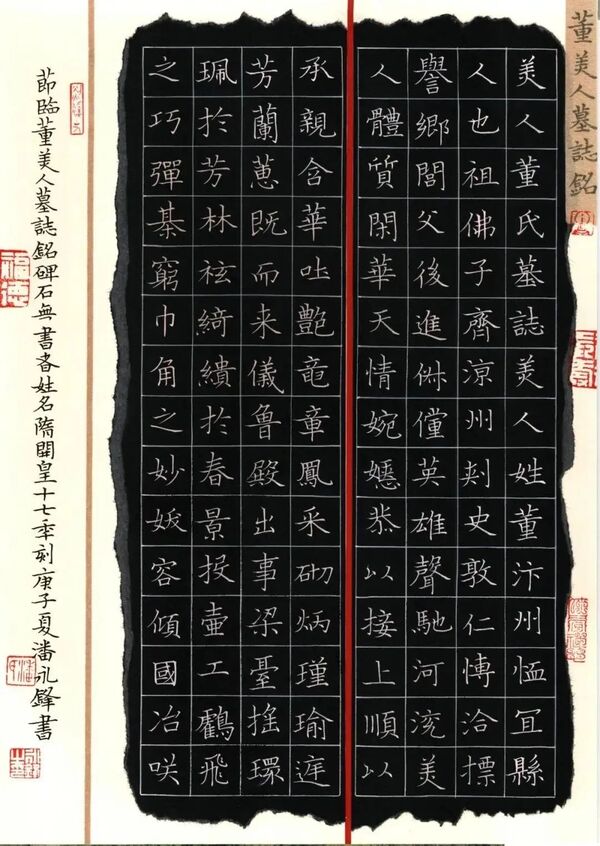 董美人墓誌銘
美人董氏墓誌美人姓董汴州恤冝縣
人也祖佛子齊涼州刾史敦仁愽洽摽
譽鄉閭父後進俶儻英雄聲馳河渷美
人體質閑華天情婉嫕恭以接上順以
承親含華吐艷竜章鳳采砌炳瑾瑜庭
芳蘭蕙既而来儀魯殿出事梁臺搖環
珮於芳林袨綺繢於春景投壷工鸖飛
之巧彈棊窮巾角之妙妖容傾國冶咲
莭臨董美人墓誌銘碑石無書者姓名隋開皇十七年刻庚子夏潘永鋒書